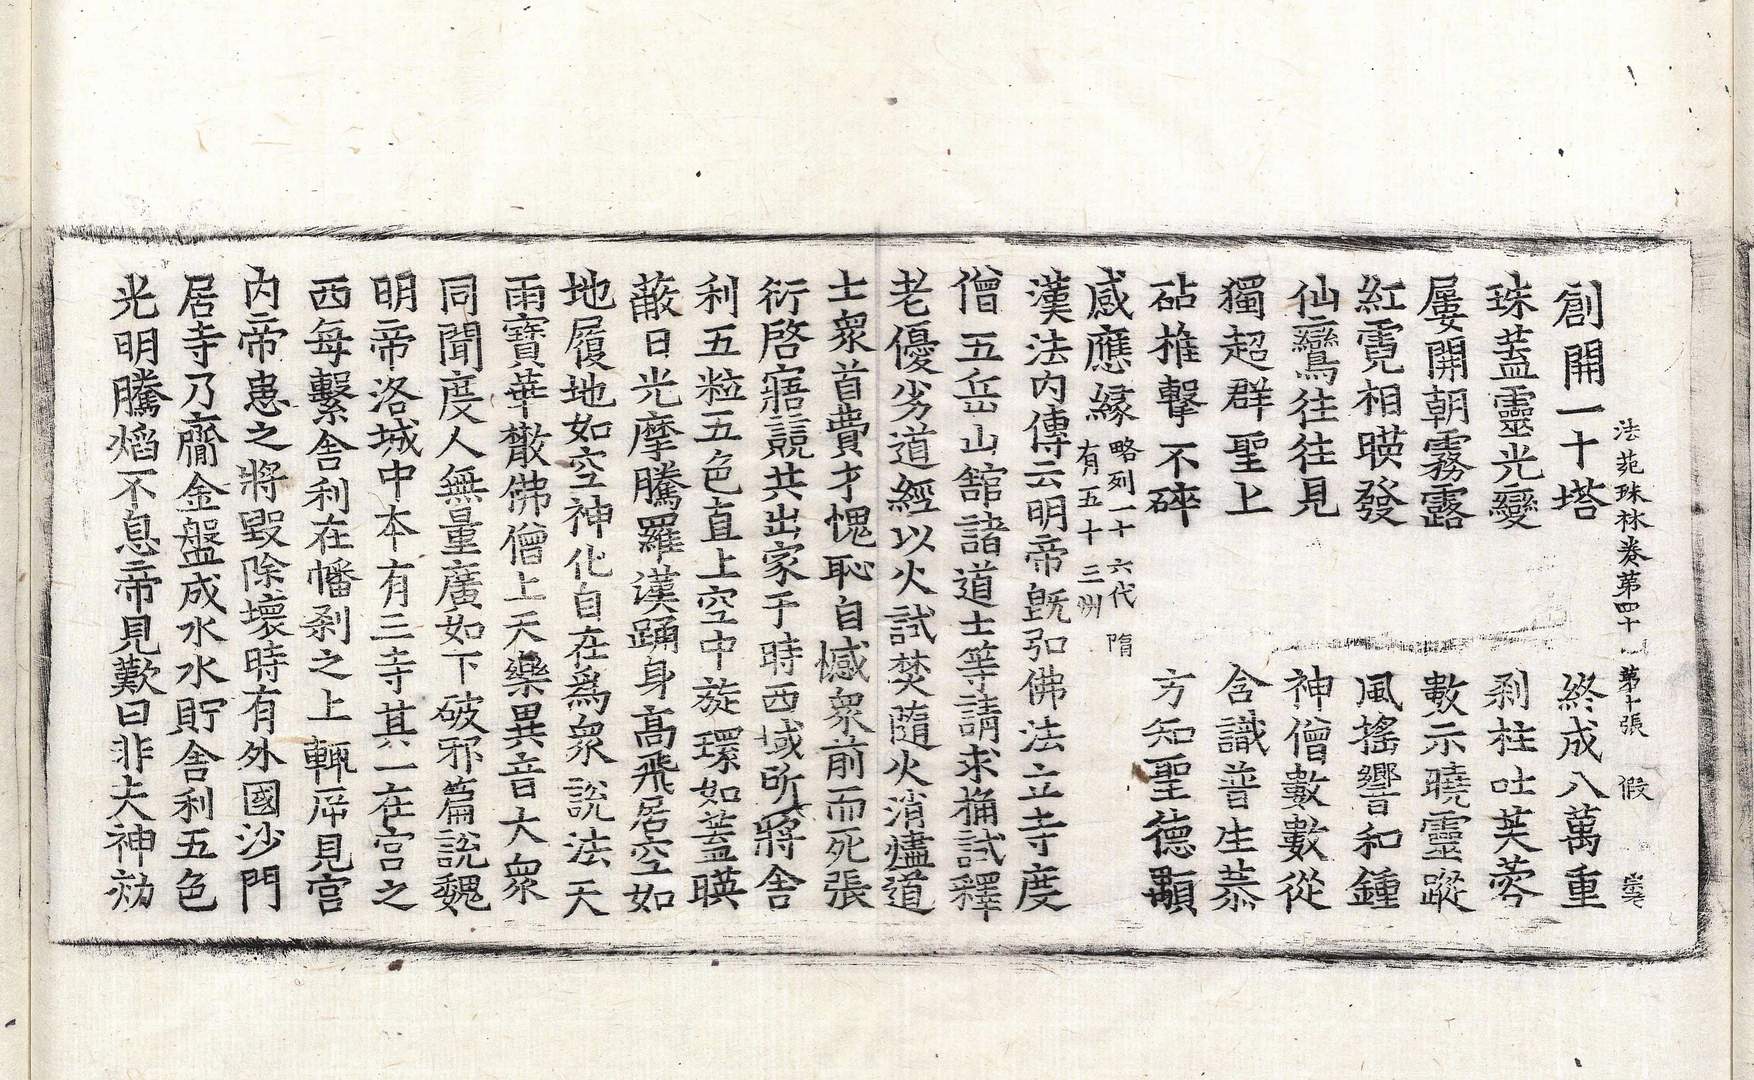 法苑珠林卷第四十 第十張 假
創開一十塔 終成八萬重
珠盖靈光變 刹柱吐芙蓉
屢開朝霧露 數示曉靈蹤
紅霓相暎發 風搖響和鍾
仙鸞往往見 神僧數數從
獨超群聖上 含識普生恭
砧椎擊不碎 方知聖德顒
感應縁 略列一十六代 隋
有五十三州
漢法内傳云明帝旣弘佛法立寺度
僧五岳山舘諸道士等請求捔試釋
老優劣道經以火試焚隨火消燼道
士衆首費才愧恥自憾衆前而死張
衍啓寤競共出家于時西域所將舍
利五粒五色直上空中旋環如盖暎
蔽日光摩騰羅漢踊身高飛居空如
地履地如空神化自在爲衆說法天
雨寶華散佛僧上天樂異音大衆
同聞度人無量廣如下破邪篇說魏
明帝洛城中本有三寺其一在宮之
西每繫舍利在幡刹之上輒斥見宮
内帝患之將毀除壞時有外國沙門
居寺乃齎金盤成水水貯舍利五色
光明騰焰不息帝見歎曰非夫神効